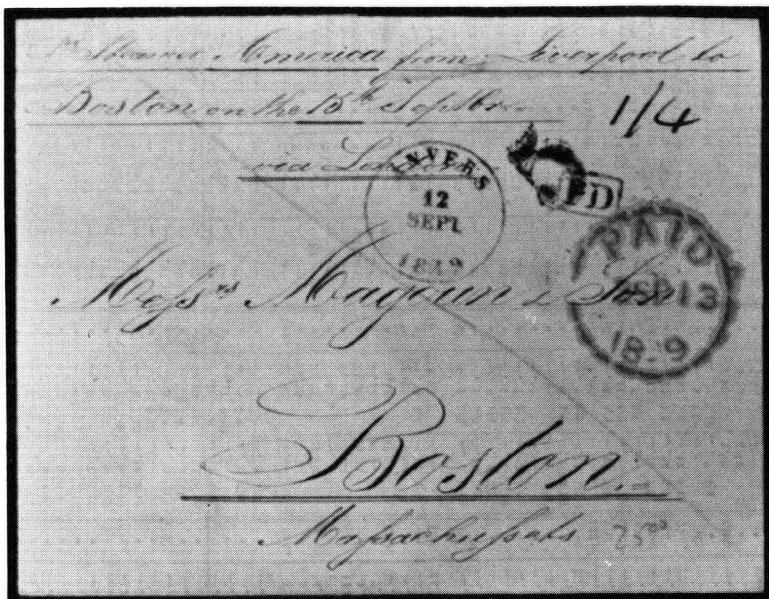 pr Steamer America from Liverpool to
Boston on the 15th Septbre
1/4
via London
ANVERS
12
SEPT
1849
PD
PAID
SP 13
18 9
Messrs Magoun & Son
Boston.
Massachussets
25oo